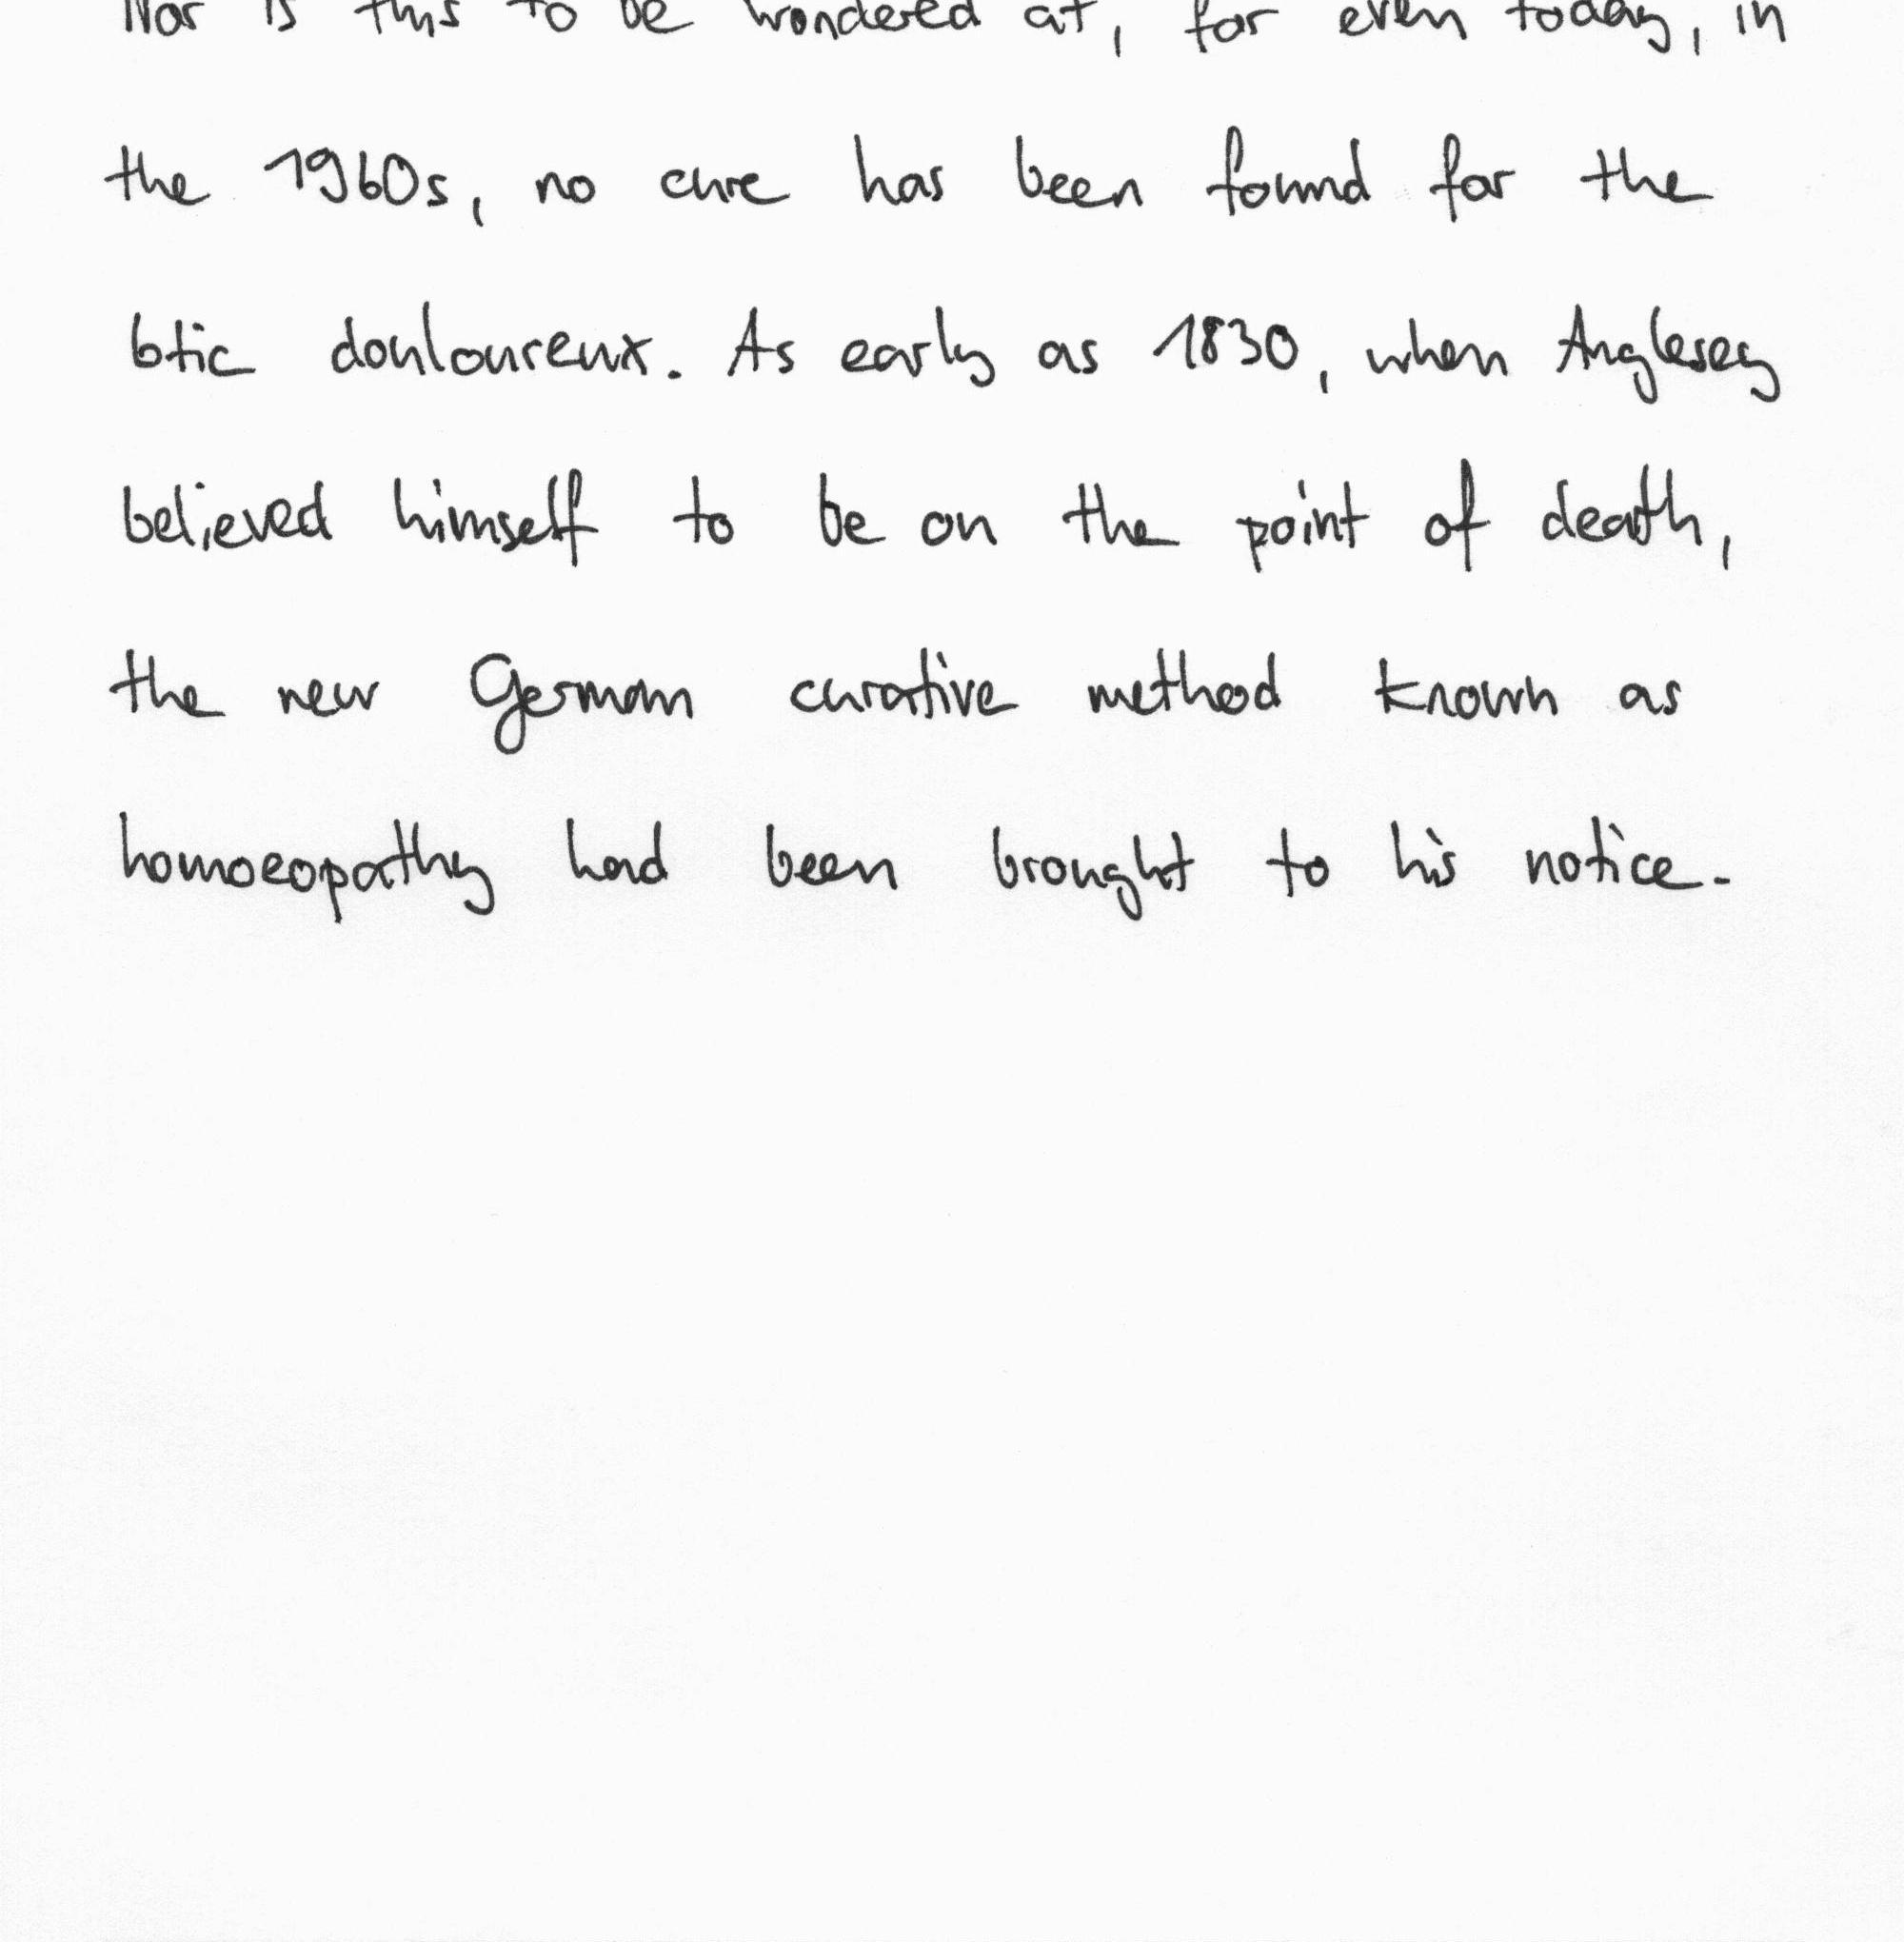 Nor is this to be wondered at, for even today, in
the 1960s, no cure has been found for the
btic douloureux. As early as 1830, when Anglesey
believed himself to be on the point of death,
the new German curative method known as
homoeopathy had been brought to his notice.